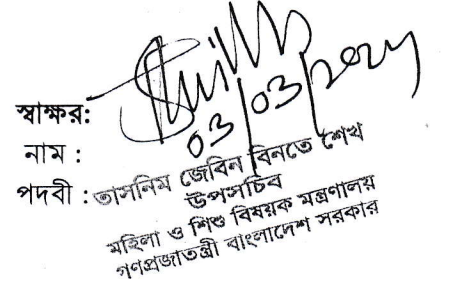 স্বাক্ষর:
03/03/2024
নাম :
পদবী :
তাসনিম জেবিন বিনতে শেখ
উপসচিব
মহিলা ও শিশু বিষয়ক মন্ত্রণালয়
গণপ্রজাতন্ত্রী বাংলাদেশ সরকার